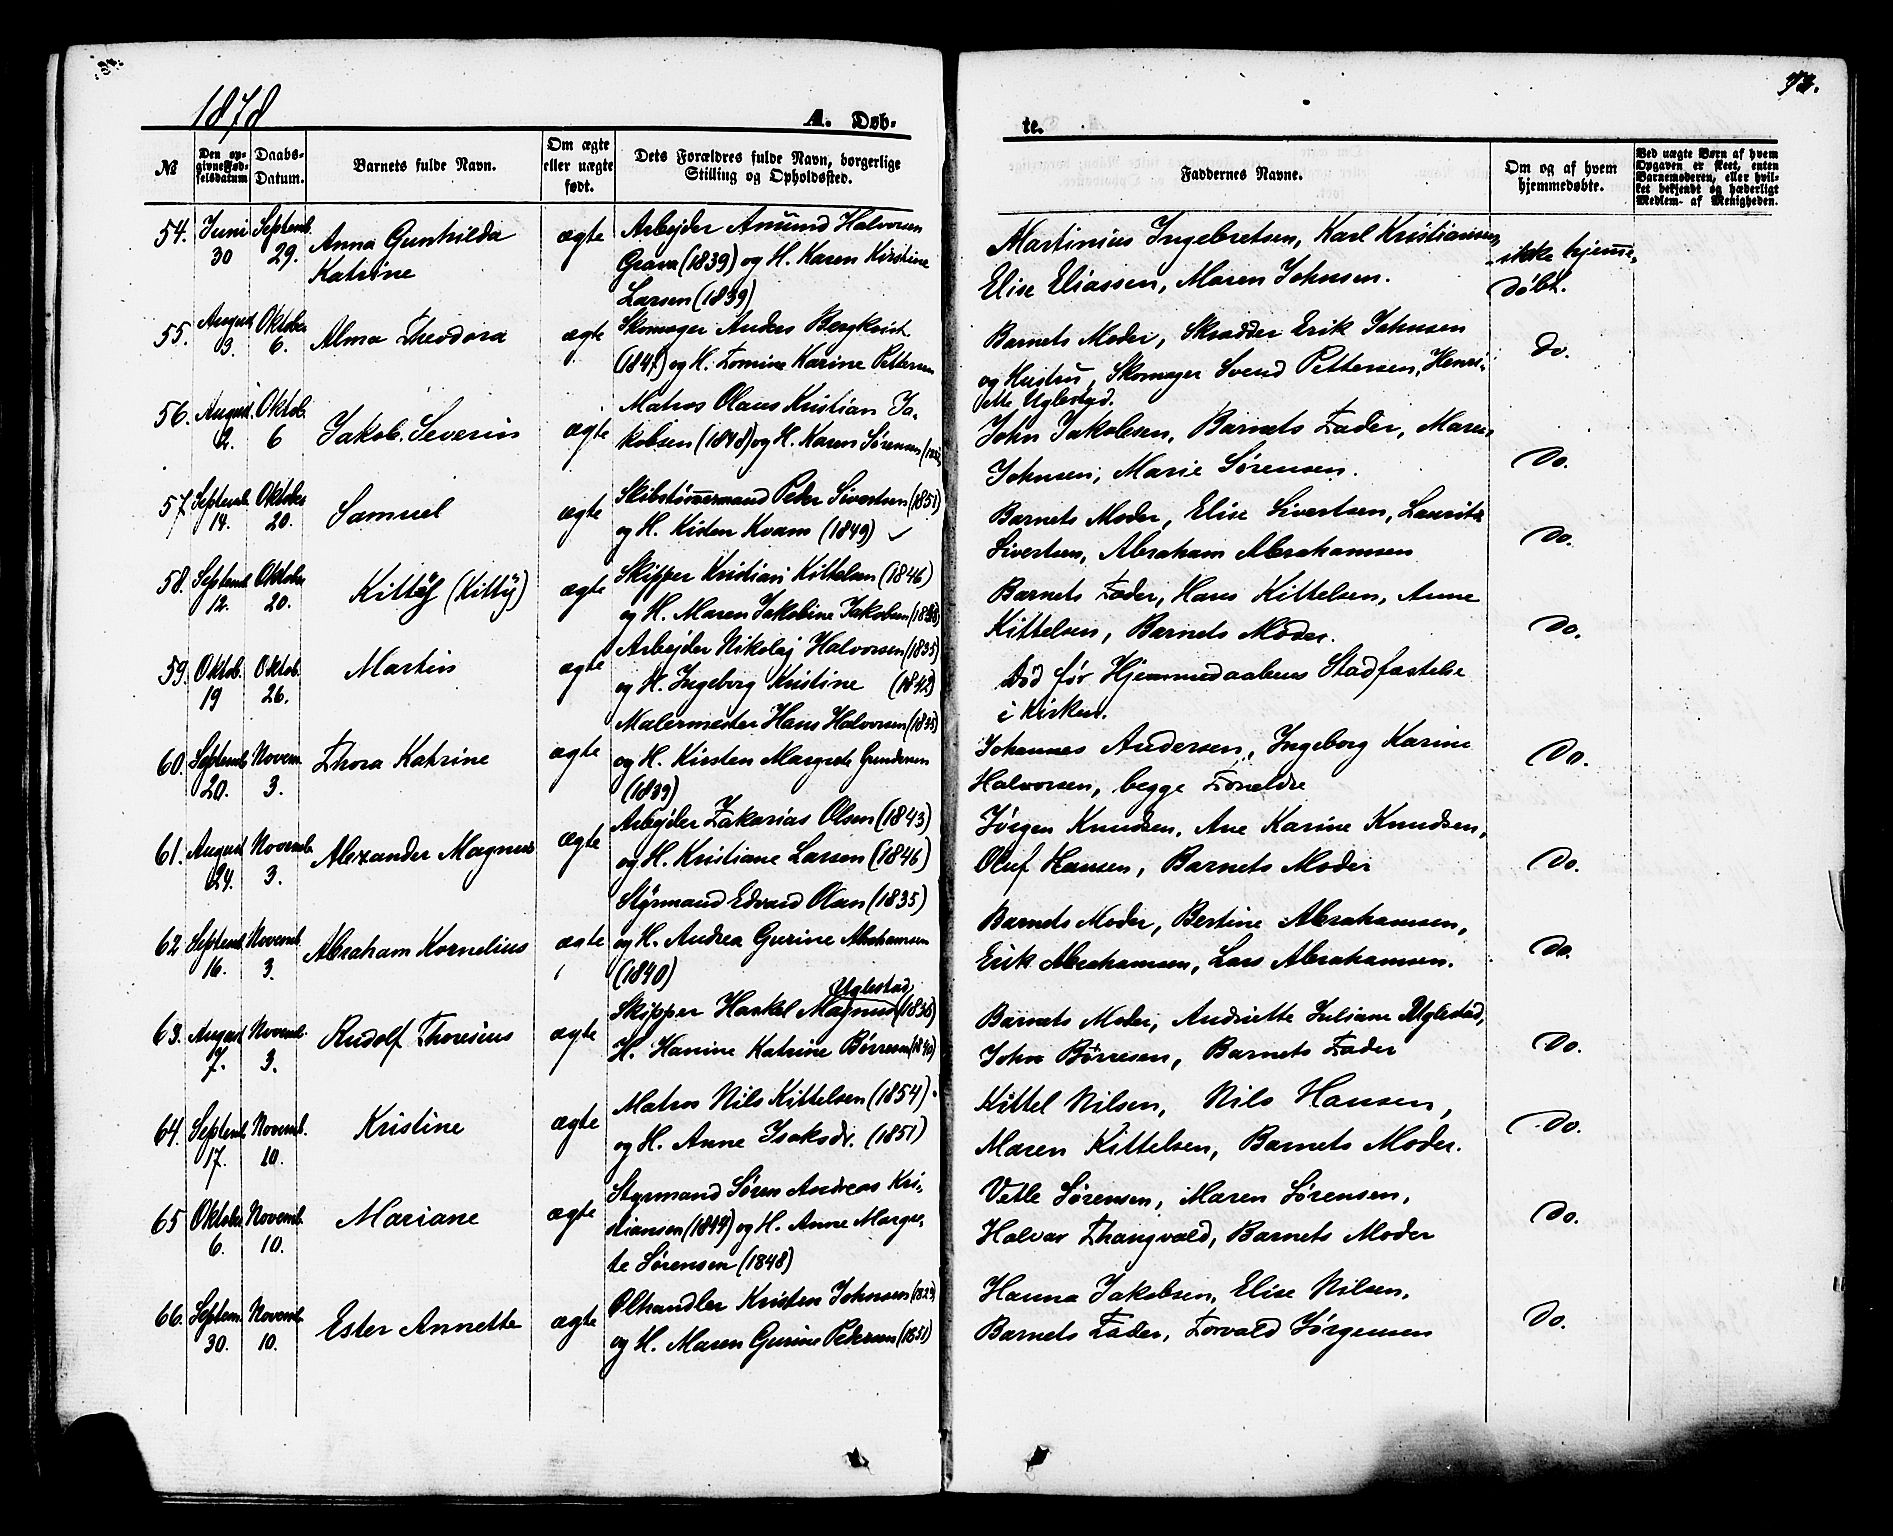 1878
A. Døb-
te.
№
Den opgivne Fødselsdatum
Daabs-Datum.
Barnets fulde Navn.
Om ægte eller uægte født.
Dets Forældres fulde Navn, borgerlige Stilling og Opholdssted.
Faddernes Navne.
Om og af hvem hjemmedøbte.
Ved uægte Børn af hvem Opgaven er skeet, enten Barnemoderen, eller hvilket bekjendt og hæderligt Medlem af Menigheden.
54. Juni 30 Septemb. 29. Anna Gunhilda Katrine ægte
Arbejder Amund Halvorsen
Grava (1839) og H. Karen Kirstine
Larsen (1839)
Martinius Ingebretsen, Karl Kristiansen,
Elise Eliassen, Maren Johnsen.
ikke hjemmedøbt.
55. August 3. Oktober 6. Alma Theodora ægte
Skomager Anders Bergkvist
(1847) og H. Tomine Karine Pettersen
Barnets Moder, Skrædder Erik Johnsen
og Hustru, Skomager Svend Pettersen, Henri-
ette Uglestad.
do.
56. August 2. Oktob. 6 Jakob Severin ægte
Matros Olaus Kristian Ja-
kobsen (1848) og H. Karen Sørensen
John Jakobsen, Barnets Fader, Maren
Johnsen, Marie Sørensen.
Do.
57. Septemb. 14. Oktober 20. Samuel ægte
Skibstømmermand Peder Sivertsen (1851)
og H. Kisten Kvam (1849)
Barnets Moder, Elise Sivertsen, Lauritz
Sivertsen, Abraham Abrahamsen
Do.
58. Septemb. 12. Oktober 20. Kittÿ (Kittÿ) ægte
Skipper Kristian Kittelsen (1846)
og H. Maren Jakobine Jakobsen
Barnets Fader, Hans Kittelsen, Anne
Kittelsen, Barnets Moder.
Do.
59. Oktob. 19 Oktob. 26. Martin ægte
Arbejder Nikolaj Halvorsen (1835)
og H. Ingeborg Kristine (1842)
Død før Hjemmedaabens Stadfæstelse
i Kirken.
60. Septemb. 20. Novem. 3. Thora Katrine ægte
Malermester Hans Halvorsen (1835)
og H. Kirsten Margrete Gundersen
(1839)
Johannes Andersen, Ingeborg Karine
Halvorsen, begge Forældre
Do.
61. August 24. Novemb. 3. Alexander Magnus ægte
Arbejder Zakarias Olsen (1843)
og H. Kristiane Larsen (1846)
Jørgen Knudsen, Ane Karine Knudsen,
Oluf Hansen, Barnets Moder
Do.
62 Septemb. 16. Novemb. 3. Abraham Kornelius ægte
Styrmand Edvard Olsen (1835)
og H. Andrea Gurine Abrahamsen
(1840)
Barnets Moder, Bertine Abrahamsen,
Erik Abrahamsen, Lars Abrahamsen.
Do.
63. August 7. Novemb. 3. Rudolf Thoresius ægte
Uglestad
Skipper Haakel Magnus (1836)
H. Hanine Katrine Børresen (1840)
Barnets Moder, Andriette Juliane Uglestad,
John Børresen, Barnets Fader
Do.
64. Septemb. 17. Novemb. 10. Kristine ægte
Matros Nils Kittelsen (1854)
og H. Anne Isaksdr. (1851)
Kittel Nilsen, Nils Hansen,
Maren Kittelsen, Barnets Moder.
Do.
65 Oktober 6. Novemb. 10. Mariane ægte
Styrmand Søren Andreas Kri-
stiansen (1849) og H. Anne Margre-
te Sørensen (1848)
Vetle Sørensen, Maren Sørensen,
Halvar Thangvald, Barnets Moder
Do.
66. Septem. 30. Novemb. 10. Ester Annette ægte
Ølhandler Kristen Johnsen (1823)
og H. Maren Gurine Petersen (1851)
Hanna Jakobsen, Elise Nilsen,
Barnets Fader, Torvald Jørgensen
Do.